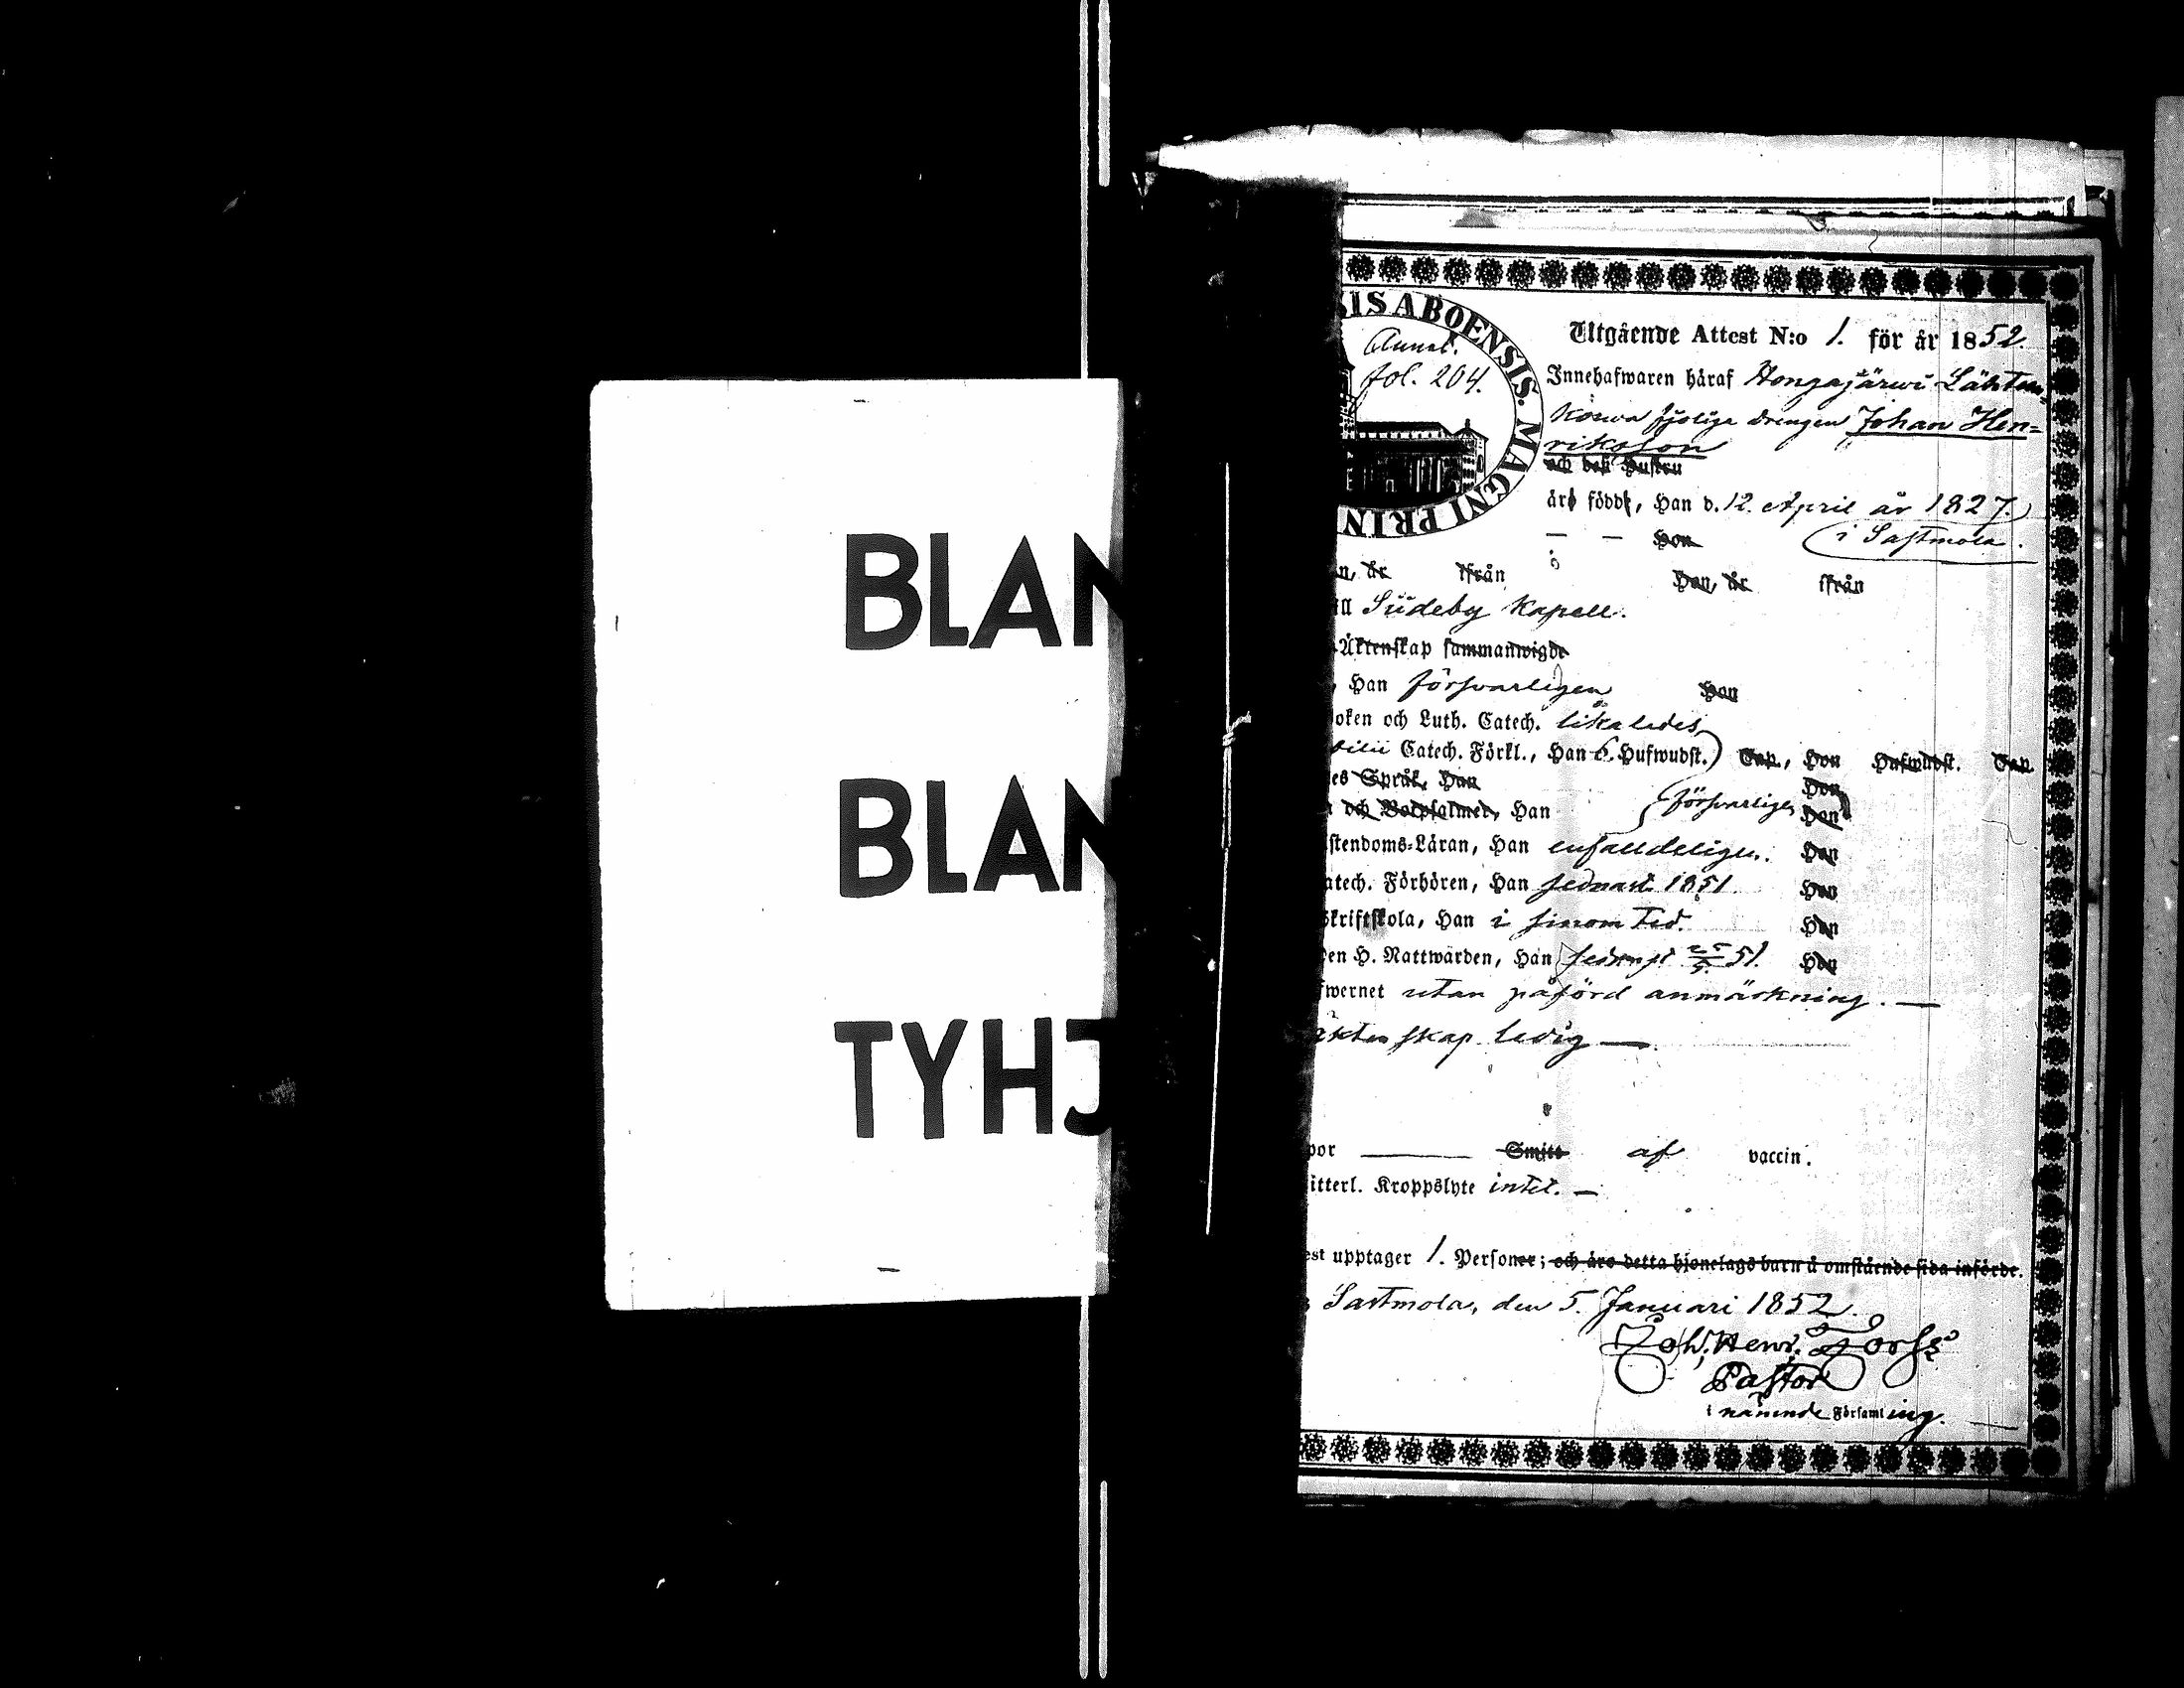 BLAN
BLAN
TYHJ
SIS ABOENSIS. MAGNI PRIN
Annot.
fol. 204.
Utgående Attest N:o 1. för år 1852.
Innehafwaren häraf Hongajärwi Lähten-
korwa drengen Johan Hen=
rikson
och deß Hustru
äro födde, Han d. 12. April år 1827.
— — Hon i Sastmola.
n, år ifrån Hon, år ifrån
ill Südeby Kapell.
Äktenskap sammanwigde
, Han försvarligen Hon
oken och Luth. Catech. likaledes
bilii Catech. Förkl., Han 6. Hufwudst. Cap., Hon Hufwudst. Cap.
es Språk, Han Hon
och Botpsalmer, Han försvarligen Hon
istendoms-Läran, Han enfaldeligen. Hon
atech. Förhören, Han sednast 1851. Hon
Skriftskola, Han i sinom tid. Hon
en H. Nattwarden, Han sednast 25/5 51. Hon
fwernet utan påförd anmärkning. —
äktenskap ledig —
por — Smitt af vaccin.
itterl. Kroppslyte intet. —
est upptager 1. Personer; och äro detta hjonelags barn å omstående sida införde.
Sastmola, den 5. Januari 1852.
Joh. Henr. Forss
Pastor
i nämnde Församling.